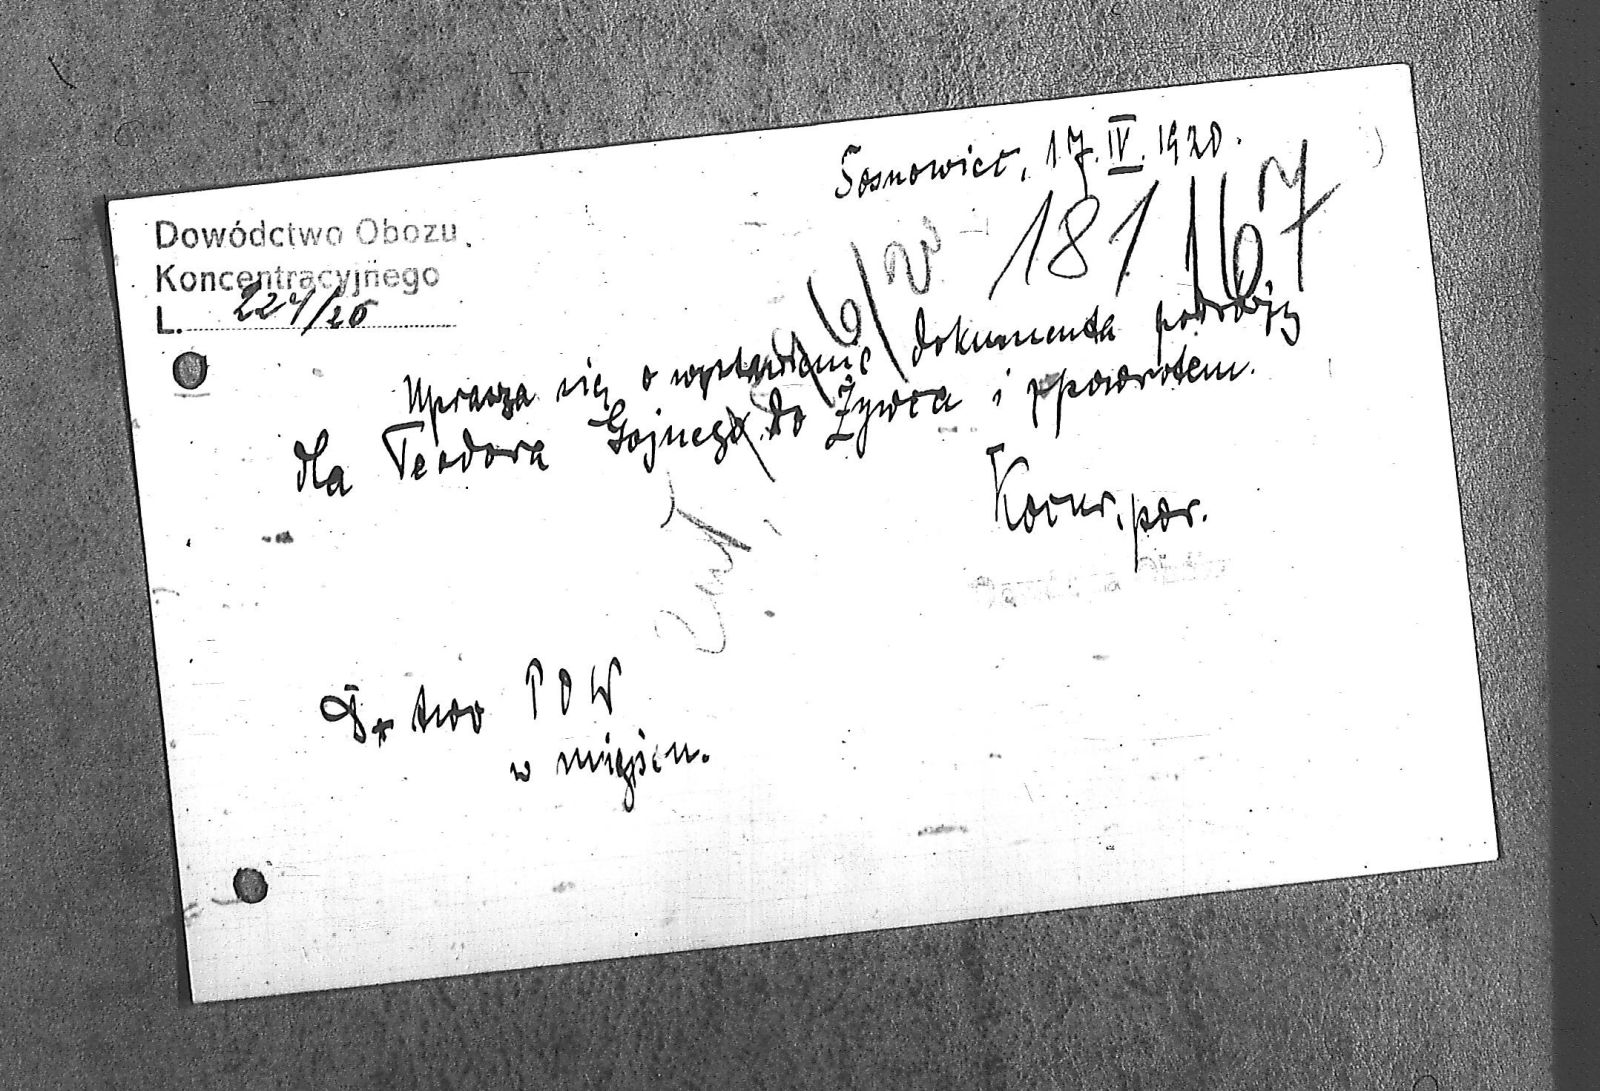 Sosnowiec, 17.IV.1920.
181 167
Dowództwo Obozu
Koncentracyjnego
L. 227/20
Uprasza się o wystawienie dokumenta podróży
dla Teodora Gojnego do Żywca i zpowrotem.
Kocur, por.
D-two POW
w miejscu.